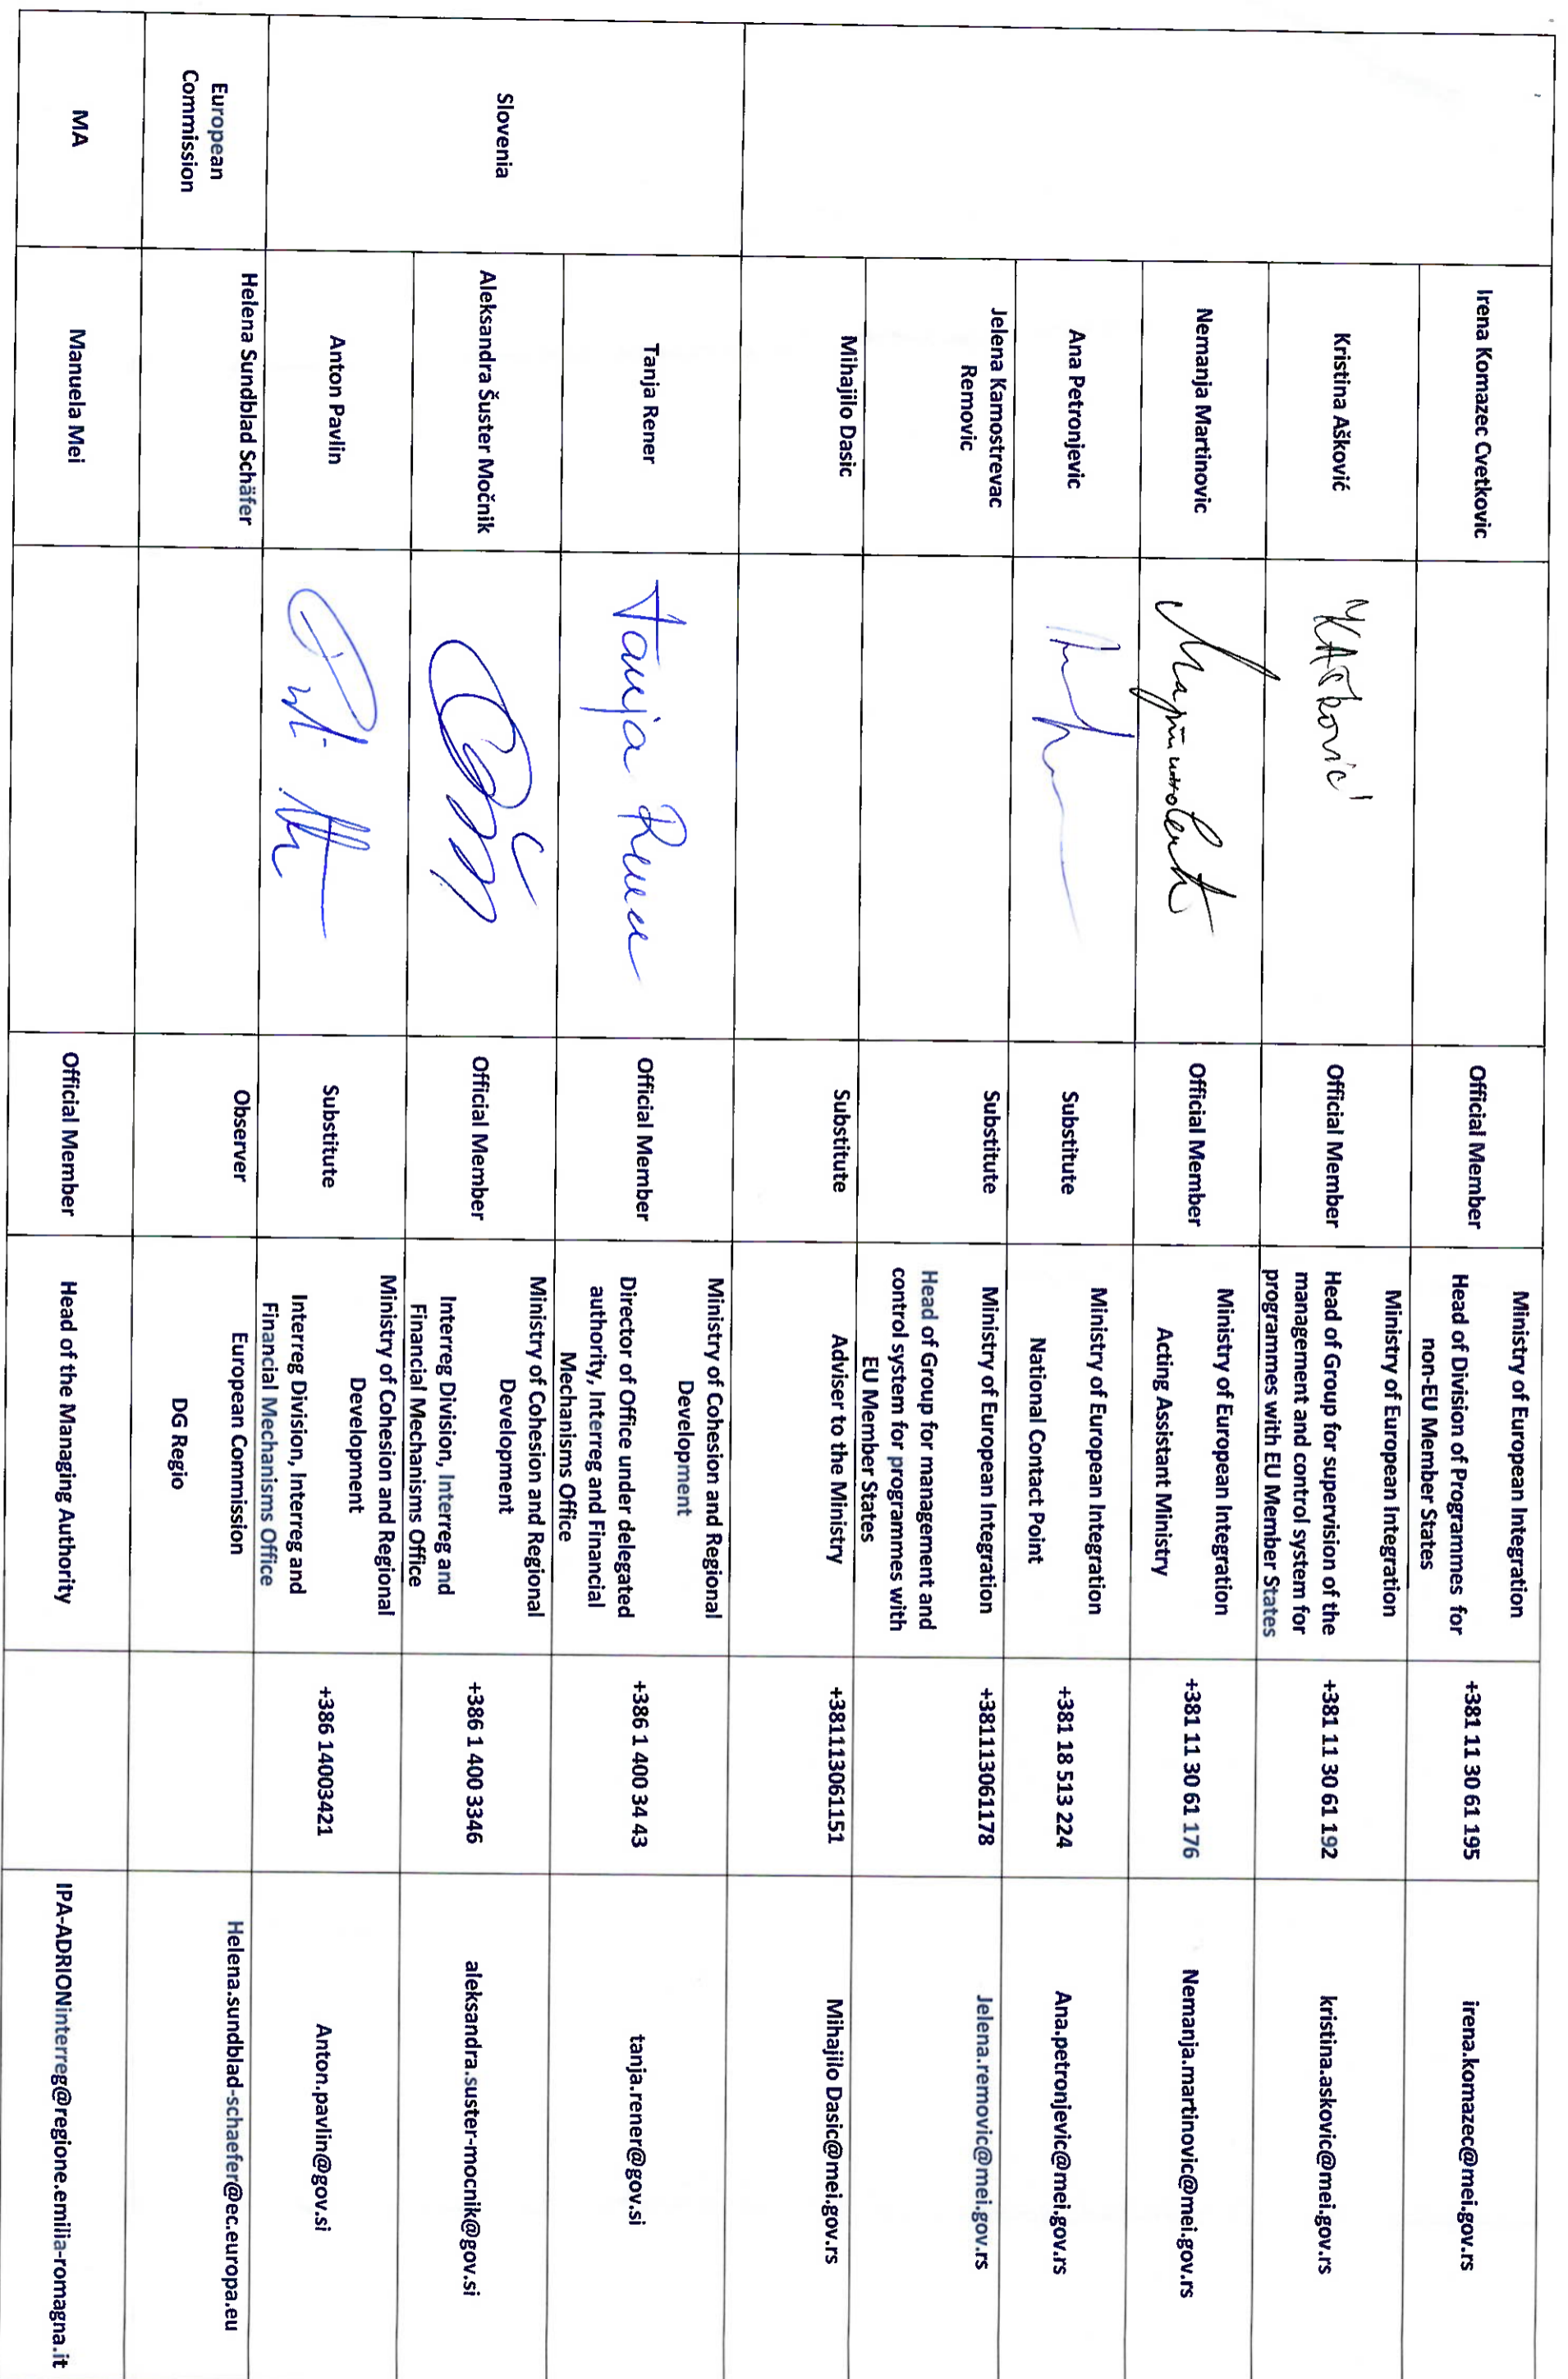 Irena Komazec Cvetkovic
Official Member
Ministry of European Integration
Head of Division of Programmes for
non-EU Member States
+381 11 30 61 195
irena.komazec@mei.gov.rs
Kristina Ašković
KAšković
Official Member
Ministry of European Integration
Head of Group for supervision of the
management and control system for
programmes with EU Member States
+381 11 30 61 192
kristina.askovic@mei.gov.rs
Nemanja Martinovic
Official Member
Ministry of European Integration
Acting Assistant Ministry
+381 11 30 61 176
Nemanja.martinovic@mei.gov.rs
Ana Petronjevic
Substitute
Ministry of European Integration
National Contact Point
+381 18 513 224
Ana.petronjevic@mei.gov.rs
Jelena Kamostrevac
Removic
Substitute
Ministry of European Integration
Head of Group for management and
control system for programmes with
EU Member States
+381113061178
Jelena.removic@mei.gov.rs
Mihajilo Dasic
Substitute
Adviser to the Ministry
+381113061151
Mihajilo Dasic@mei.gov.rs
Slovenia
Tanja Rener
Tanja Rener
Official Member
Ministry of Cohesion and Regional
Development
Director of Office under delegated
authority, Interreg and Financial
Mechanisms Office
+386 1 400 34 43
tanja.rener@gov.si
Aleksandra Šuster Močnik
Official Member
Ministry of Cohesion and Regional
Development
Interreg Division, Interreg and
Financial Mechanisms Office
+386 1 400 3346
aleksandra.suster-mocnik@gov.si
Anton Pavlin
Substitute
Ministry of Cohesion and Regional
Development
Interreg Division, Interreg and
Financial Mechanisms Office
+386 14003421
Anton.pavlin@gov.si
European
Commission
Helena Sundblad Schäfer
Observer
European Commission
DG Regio
Helena.sundblad-schaefer@ec.europa.eu
MA
Manuela Mei
Official Member
Head of the Managing Authority
IPA-ADRIONinterreg@regione.emilia-romagna.it